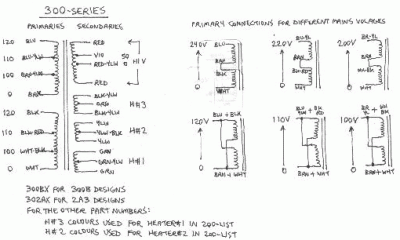 300-SERIES
PRIMARIES SECONDARIES
PRIMARY CONNECTIONS FOR DIFFERENT MAINS VOLAGES
120 BLU
110 BLU-YLW
100 BRN-YLW
0 BRN
120 BLK
110 BLK-RED
100 WHT-BLK
0 WHT
RED
VIO 50
RED-YLW 0
H1V
RED
BLK-YLW
H#3
BLK-YLW
YLW
YLW-BLK
H#2
YLW
GRN
GRN-YLW
H#1
GRN
240V
BLU
BRN
BLK
0
WHT
220V
BLU-YL
BRN
BLK-RD
0
WHT
200V
BR-YL
BRN
WH-BK
0
WHT
120V
BLU + BLK
0
BRN + WHT
110V
BLU YLW + BLK RD
0
BRN + WHT
100V
BR YL + WH BK
0
BRN + WHT
300BX FOR 300B DESIGNS
302AX FOR 2A3 DESIGNS
FOR THE OTHER PART NUMBERS:
H#3 COLOURS USED FOR HEATER#1 IN 200-LIST
H#2 COLOURS USED FOR HEATER#2 IN 200-LIST